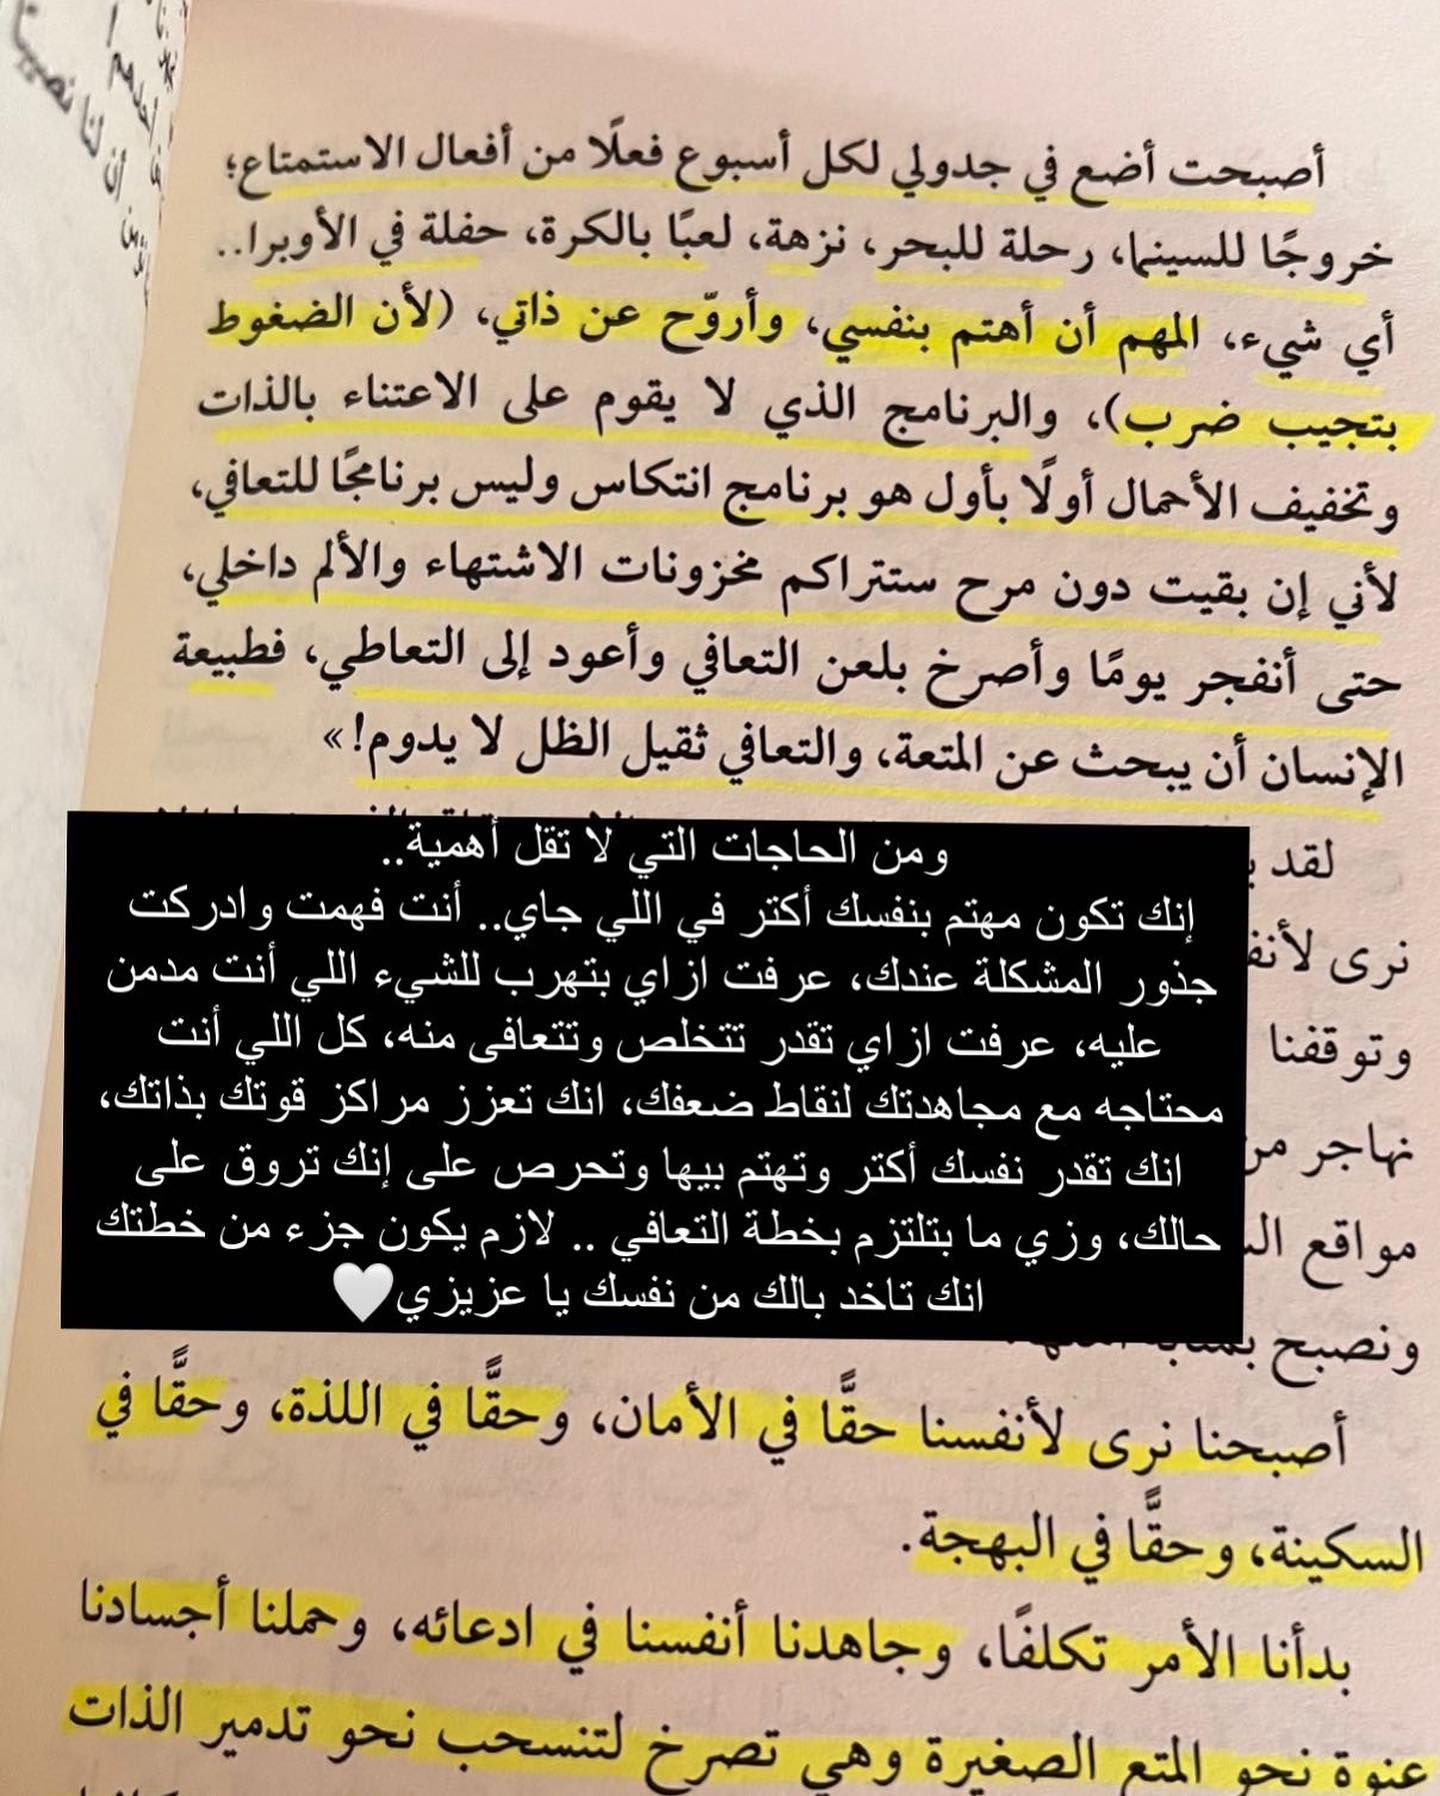 أصبحت أضع في جدولي لكل أسبوع فعلًا من أفعال الاستمتاع؛
خروجًا للسينما، رحلة للبحر، نزهة، لعبًا بالكرة، حفلة في الأوبرا..
أي شيء، المهم أن أهتم بنفسي، وأروّح عن ذاتي، (لأن الضغوط
بتجيب ضرب)، والبرنامج الذي لا يقوم على الاعتناء بالذات
وتخفيف الأحمال أولًا بأول هو برنامج انتكاس وليس برنامجًا للتعافي،
لأني إن بقيت دون مرح ستتراكم مخزونات الاشتهاء والألم داخلي،
حتى أنفجر يومًا وأصرخ بلعن التعافي وأعود إلى التعاطي، فطبيعة
الإنسان أن يبحث عن المتعة، والتعافي ثقيل الظل لا يدوم!»
لقد
نرى
وتوقفنا
نهاجر
مواقع
ونصبح
ومن الحاجات التي لا تقل أهمية..
إنك تكون مهتم بنفسك أكتر في اللي جاي.. أنت فهمت وادركت
جذور المشكلة عندك، عرفت ازاي بتهرب للشيء اللي أنت مدمن
عليه، عرفت ازاي تقدر تتخلص وتتعافى منه، كل اللي أنت
محتاجه مع مجاهدتك لنقاط ضعفك، انك تعزز مراكز قوتك بذاتك،
انك تقدر نفسك أكتر وتهتم بيها وتحرص على إنك تروق على
حالك، وزي ما بتلتزم بخطة التعافي .. لازم يكون جزء من خطتك
انك تاخد بالك من نفسك يا عزيزي🤍
أصبحنا نرى لأنفسنا حقًّا في الأمان، وحقًّا في اللذة، وحقًّا في
السكينة، وحقًّا في البهجة.
بدأنا الأمر تكلفًا، وجاهدنا أنفسنا في ادعائه، وحملنا أجسادنا
عنوة نحو المتع الصغيرة وهي تصرخ لتنسحب نحو تدمير الذات